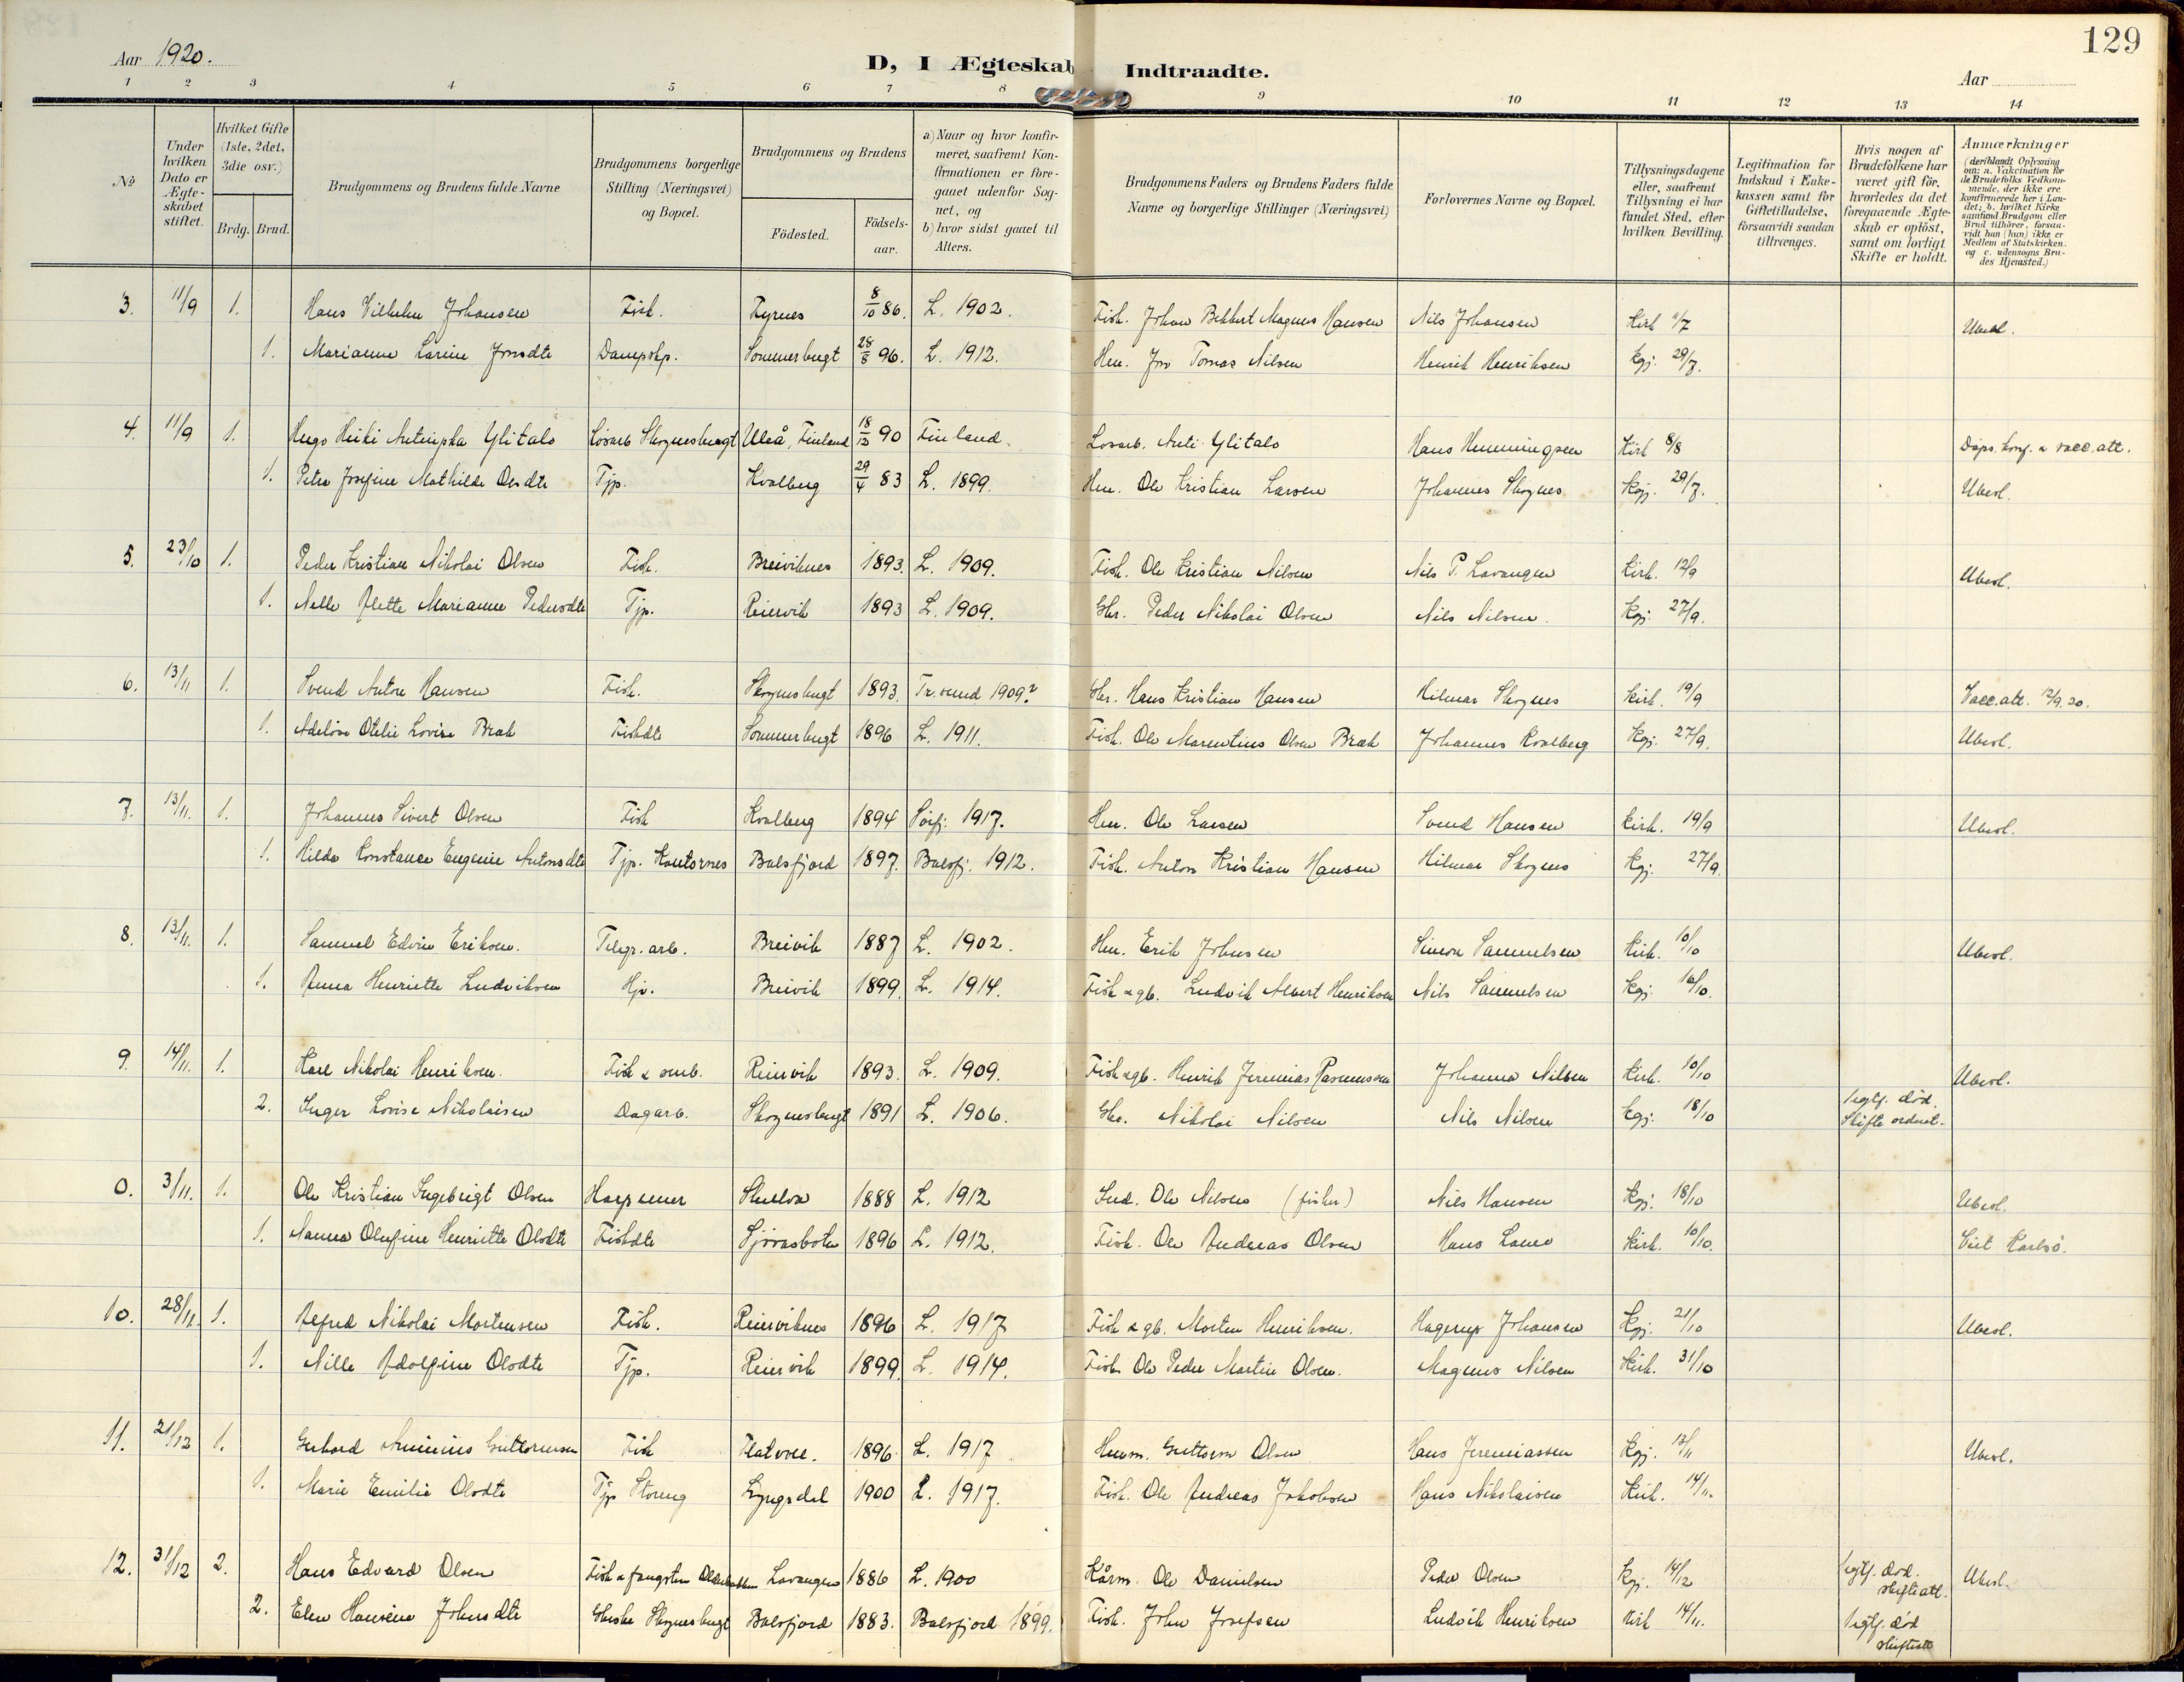 129
Aar 1920.
D, I Ægteskab Indtraadte.
Aar
1 2 3 4 5 6 7 8 9 10 11 12 13 14
№
Under hvilken Dato er Ægteskabet stiftet.
Hvilket Gifte (1ste, 2det, 3die osv.)
Brdg. Brud.
Brudgommens og Brudens fulde Navne
Brudgommens borgerlige Stilling (Næringsvei) og Bopæl.
Brudgommens og Brudens
Födested.
Födsels-aar.
a) Naar og hvor konfirmeret, saafremt Konfirmationen er foregaaet udenfor Sognet, og
b) hvor sidst gaaet til Alters.
Brudgommens Faders og Brudens Faders fulde Navne og borgerlige Stillinger (Næringsvei)
Forlovernes Navne og Bopæl.
Tillysningsdagene eller, saafremt Tillysning ei har fundet Sted, efter hvilken Bevilling.
Legitimation for Indskud i Enkekassen samt for Giftetilladelse, forsaavidt saadan tiltrænges.
Hvis nogen af Brudefolkene har været gift för, hvorledes da det foregaaende Ægteskab er oplöst, samt om lovligt Skifte er holdt.
Anmærkninger (deriblandt Oplysning om: a. Vakcination for de Brudefolks Vedkommende, der ikke ere konfirmerede her i Landet; b. hvilket Kirkesamfund Brudgom eller Brud tilhörer, forsaavidt han (hun) ikke er Medlem af Statskirken. og c. udensogns Brudes Hjemsted.)
3. 11/9 1. Hans Vilhelm Johansen Fisk. Fyrnes 8/10 86. L. 1902. Fisk. Johan Magnus Hansen Nils Johansen Kirk 11/7 Ubesl.
1. Marianne Larine Jonsdtr Sommerbugt 28/8 96. L. 1912. Jon Tomas Nilsen Henrik Henriksen Kgj. 29/7.
4. 11/9 1. Hugo Heiki Ylitalo Løsarb Skognesbugt Uleå, Finland 90 Finland Løsarb. Anti Ylitalo Hans Henningsen Kirk 8/8 Daps. konf. & vacc. att.
1. Petra Josefine Mathilde Olsdtr Tjp. Kvalberg 29/4 83 L. 1899. Ole Kristian Larsen Johannes Skognes Kgj. 29/7. Ubesl.
5. 23/10 1. Peder Kristian Nikolai Olsen Fisk. Breiviknes 1893. L. 1909. Fisk. Ole Kristian Nilsen Nils P. Lavangen Kirk. 12/9 Ubesl.
1. Marianne Pedersdtr Tjp. Reiervik 1893 L. 1909. Gbr. Peder Nikolai Olsen Nils Nilsen Kgj. 27/9.
6. 13/11 1. Svend Anton Hansen Fisk. Skognesbugt 1893. Tr.sund 1909? Gbr. Hans Kristian Hansen Hilmar Skognes Kirk. 19/9 Vacc.att. 12/9.20.
1. Otelie Lovise Bræk Fiskdtr Sommerbugt 1896 L. 1911. Fisk. Ole Marentius Olsen Bræk Johannes Kvalberg Kgj. 27/9. Ubesl.
7. 13/11. 1. Johannes Sivert Olsen Fisk Kvalberg 1894 Sørfj: 1917. Ole Larsen Svend Hansen Kirk. 19/9 Ubesl.
1. Hilda Konstance Eugenie Antonsdtr Tjp. Kantornes Balsfjord 1897. Balsfj. 1912. Fisk. Anton Kristian Hansen Hilmar Skognes Kgj. 27/9.
8. 13/11. 1. Samuel Edvin Eriksen. Telegr. arb. Breivik 1887 L. 1902. Erik Johnsen Simon Samuelsen Kirk. 10/10 Ubesl.
1. Anna Henriette Ludviksen Hjv. Breivik 1899. L. 1914. Fisk & gb. Ludvik Albert Henriksen Nils Samuelsen Kgj. 16/10.
9. 14/11. 1. Karl Nikolai Henriksen. Fisk & smb. Reiervik 1893. L. 1909. Fisk & gb. Henrik Jeremias Rasmussen Johannes Nilsen Kirk. 10/10 Ubesl.
2. Inger Lovise Nikolaisen Dagarb. Skognesbugt 1891 L. 1906. Gbr. Nikolai Nilsen Nils Nilsen Kgj. 18/10 død. Skifte ordnet.
0. 3/11. 1. Ole Kristian Ingebrigt Olsen 1888 L. 1912 Ole Nilsen (fisker) Nils Hansen Kgj. 18/10 Ubesl.
1. Nanna Olufine Henriette Olsdtr Fiskdtr 1896 L. 1912. Fisk. Ole Andreas Olsen Hans Kirk. 10/10. Viet Karlsö.
10. 28/11. 1. Alfred Nikolai Mortensen Fisk. Reierviknes 1896 L. 1917 Fisk & gb. Morten Henriksen. Hagerup Johansen Kgj. 21/10 Ubesl.
1. Nille Adolfine Olsdtr Tjp. Reiervik 1899. L. 1914. Fisk. Ole Peder Martin Olsen. Magnus Nilsen Kirk. 31/10
11. 21/12 1. Gerhard Guttormsen Fisk 1896. L. 1917 Guttorm Olsen Hans Jeremiassen Kgj. Ubesl.
1. Marie Emilie Olsdtr Tjp Storeng Lyngsdal 1900 L. 1917. Fisk. Ole Andreas Jakobsen Hans Nikolaisen Kirk. 14/11.
12. 31/12 2. Hans Edvard Olsen Fisk & fangstm Lavangen 1886 L. 1900 Ole Danielsen Peder Olsen Kgj. 14/12 død. skifteatt. Ubesl.
2. Elen Hansine Johnsdtr Skognesbugt Balsfjord 1883. Balsfjord 1899. Fisk. John Josefsen Ludvik Henriksen Kirk 14/11. død skifteatt